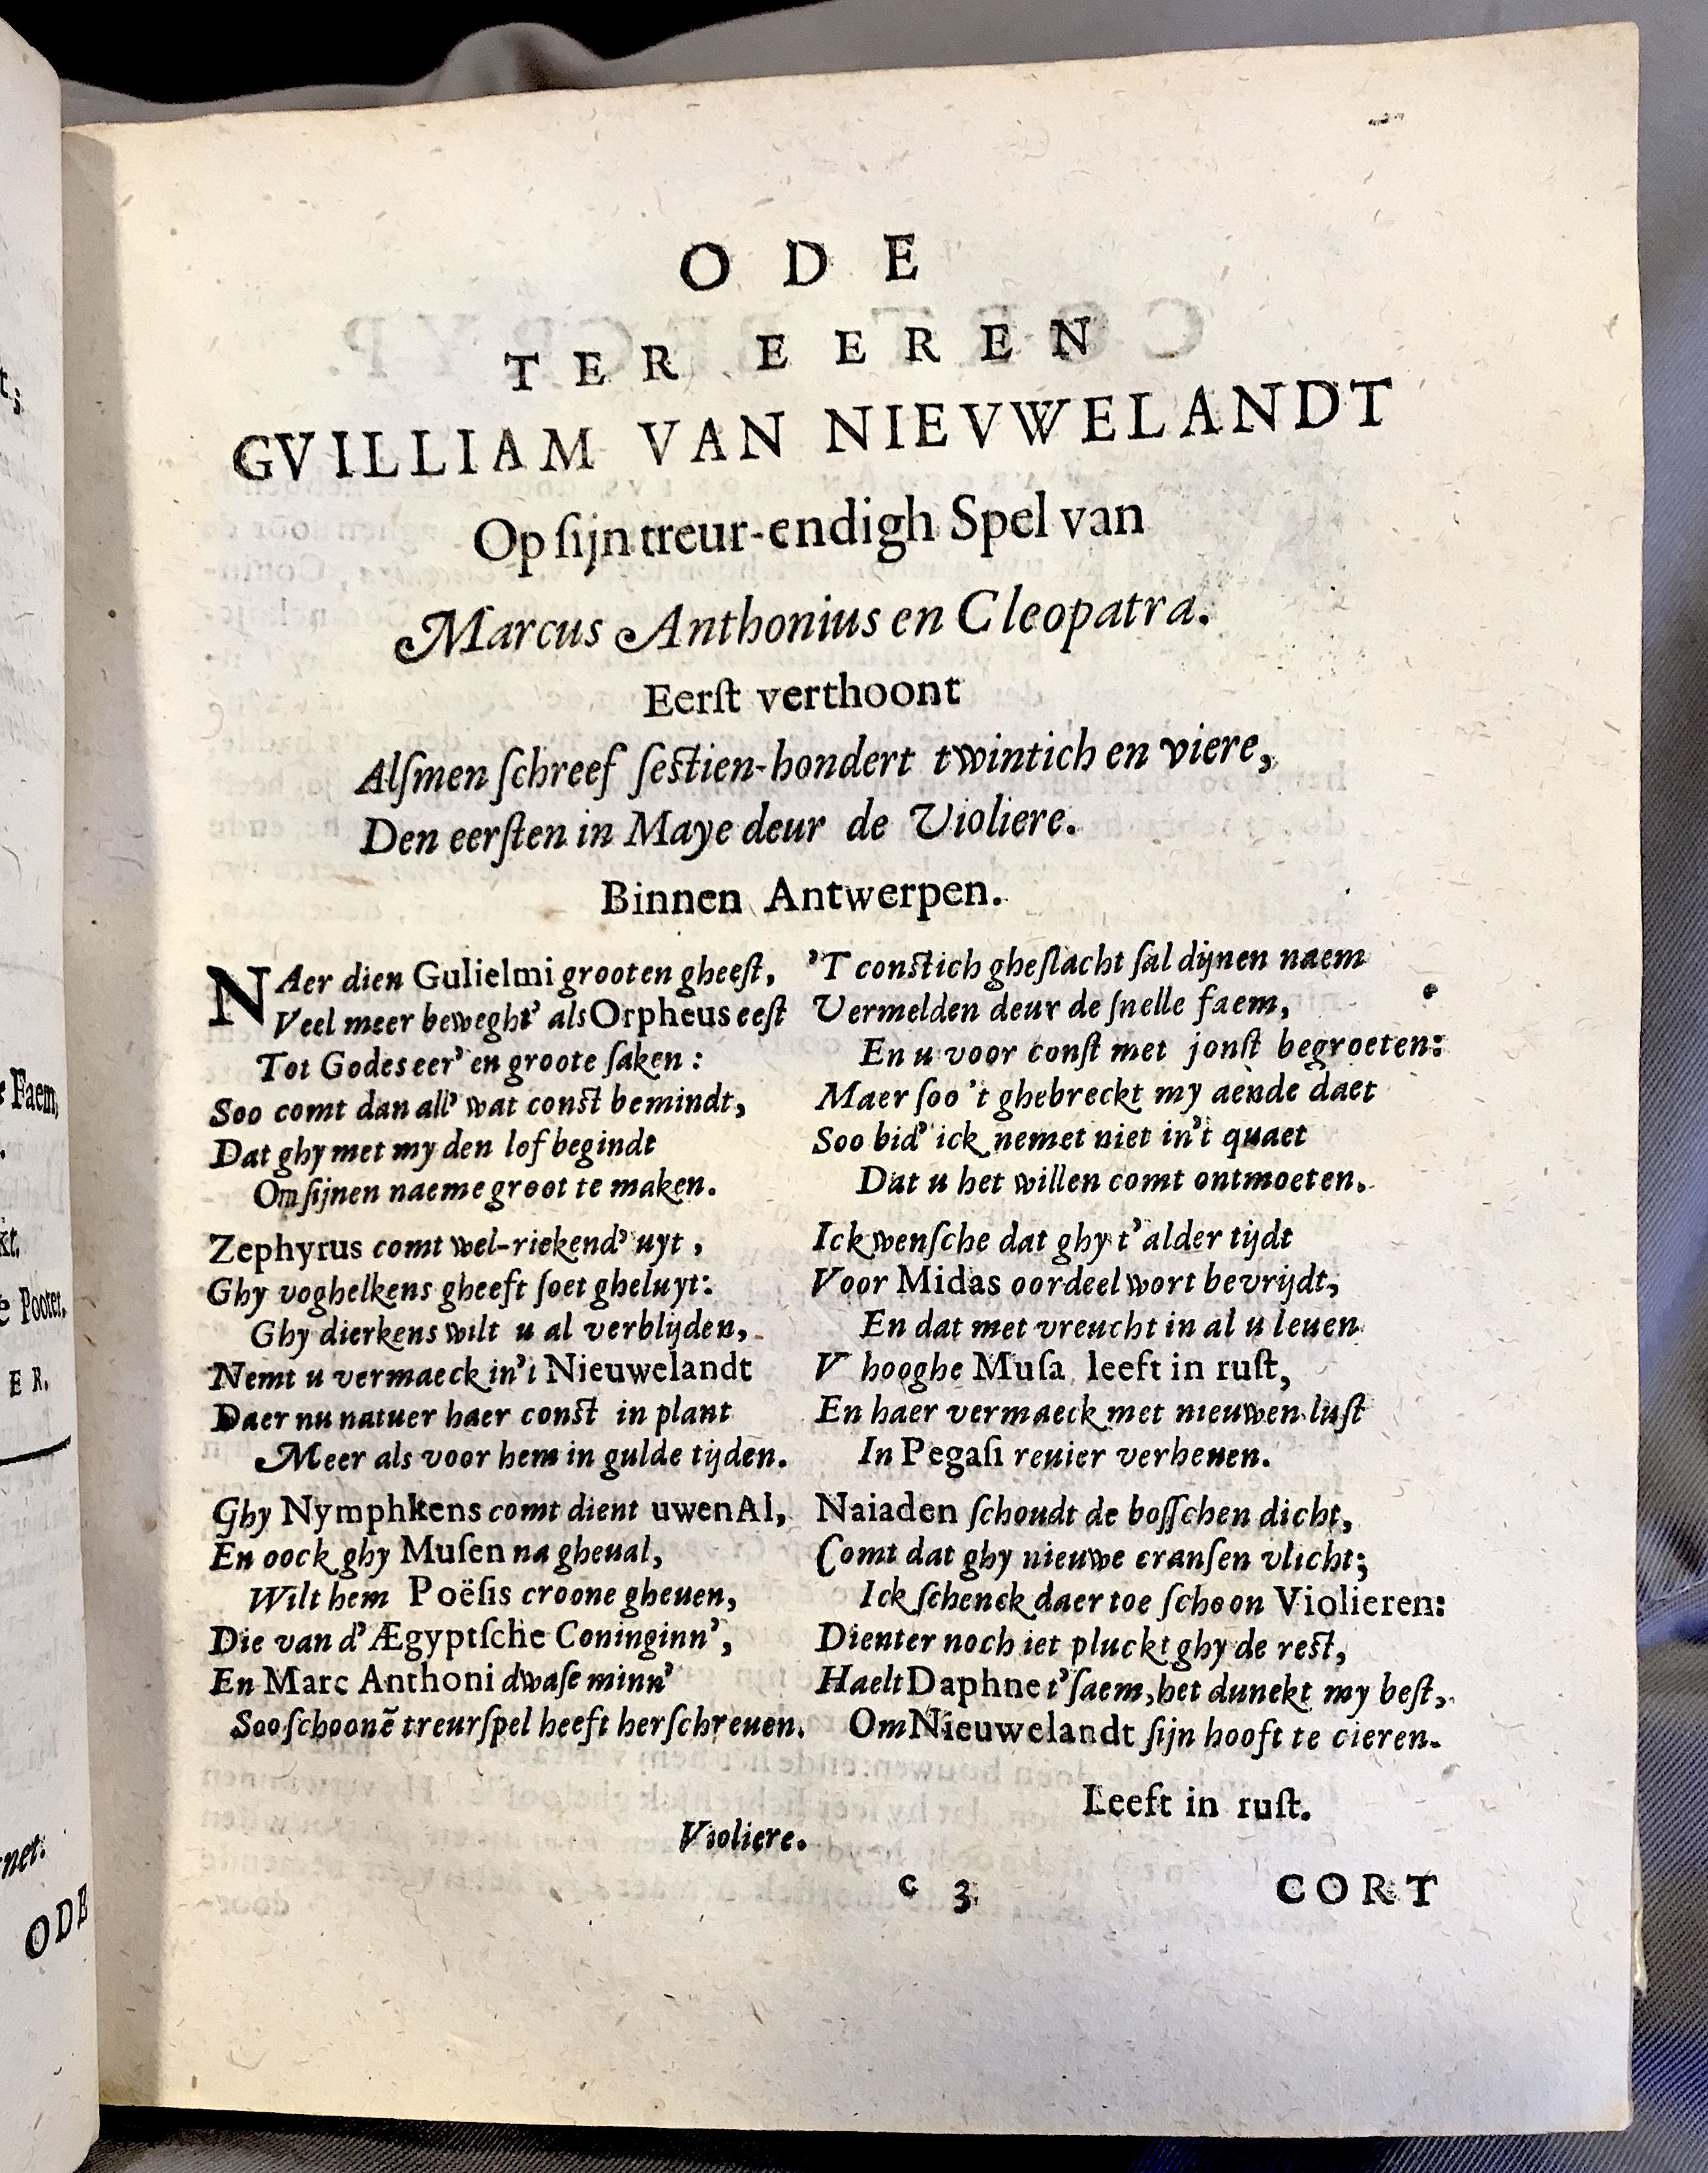 ODE
TER EEREN
GVILLIAM VAN NIEVWELANDT
Op ſijn treur-endigh Spel van
Marcus Anthonius en Cleopatra.
Eerſt verthoont
Alſmen ſchreef ſestien-hondert twintich en viere,
Den eerſten in Maye deur de Violiere.
Binnen Antwerpen.
NAer dien Gulielmi grooten gheeſt,
Veel meer beweght' als Orpheus eeſt
Tot Godes eer' en groote ſaken:
Soo comt dan all' wat const bemindt,
Dat ghy met my den lof begindt
Om ſijnen naeme groot te maken.
Zephyrus comt wel-riekend' uyt,
Ghy voghelkens gheeft ſoet gheluyt:
Ghy dierkens wilt u al verblijden,
Nemt u vermaeck in't Nieuwelandt
Daer nu natuer haer const in plant
Meer als voor hem in gulde tijden.
Ghy Nymphkens comt dient uwen Al,
En oock ghy Muſen na gheual,
Wilt hem Poëſis croone gheuen,
Die van d' Ægyptſche Coninginn',
En Marc Anthoni dwaſe minn'
Soo ſchoonẽ treurſpel heeft herſchreuen.
'T constich gheſlacht ſal dijnen naem
Vermelden deur de ſnelle faem,
En u voor conſt met jonſt begroeten:
Maer ſoo 't ghebreckt my aende daet
Soo bid' ick nemet niet in't quaet
Dat u het willen comt ontmoeten.
Ick wenſche dat ghy t'alder tijdt
Voor Midas oordeel wort bevrijdt,
En dat met vreucht in al u leuen
V hooghe Muſa leeft in ruſt,
En haer vermaeck met nieuwen luſt
In Pegaſi reuier verheuen.
Naiaden ſchoudt de boſſchen dicht,
Comt dat ghy nieuwe cranſen vlicht;
Ick ſchenck daer toe ſchoon Violieren:
Dienter noch iet pluckt ghy de rest,
Haelt Daphne t'ſaem, het dunckt my beſt,
Om Nieuwelandt ſijn hooft te cieren.
Leeft in ruſt.
Violiere.
c 3
CORT
t;
Faem,
kt.
Pooter.
E R.
net.
ODE